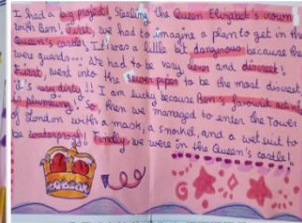 I had a big project! Stealing the Queen Elizabet's crown
with Ben! First, we had to imagine a plan to get in the
Queen's castle! It was a little bit dangerous because the
were guards... We had to be very clever and discreet!
First, went into the sewer pipes to be the most discreet
It's very dirty!! I am lucky because Ben's favourite activity
is plumbing! So, then we managed to enter the Tower
of London with a mask, a snorkel, and a wet suit to
be waterproof! Finally, we were in the Queen's castle!